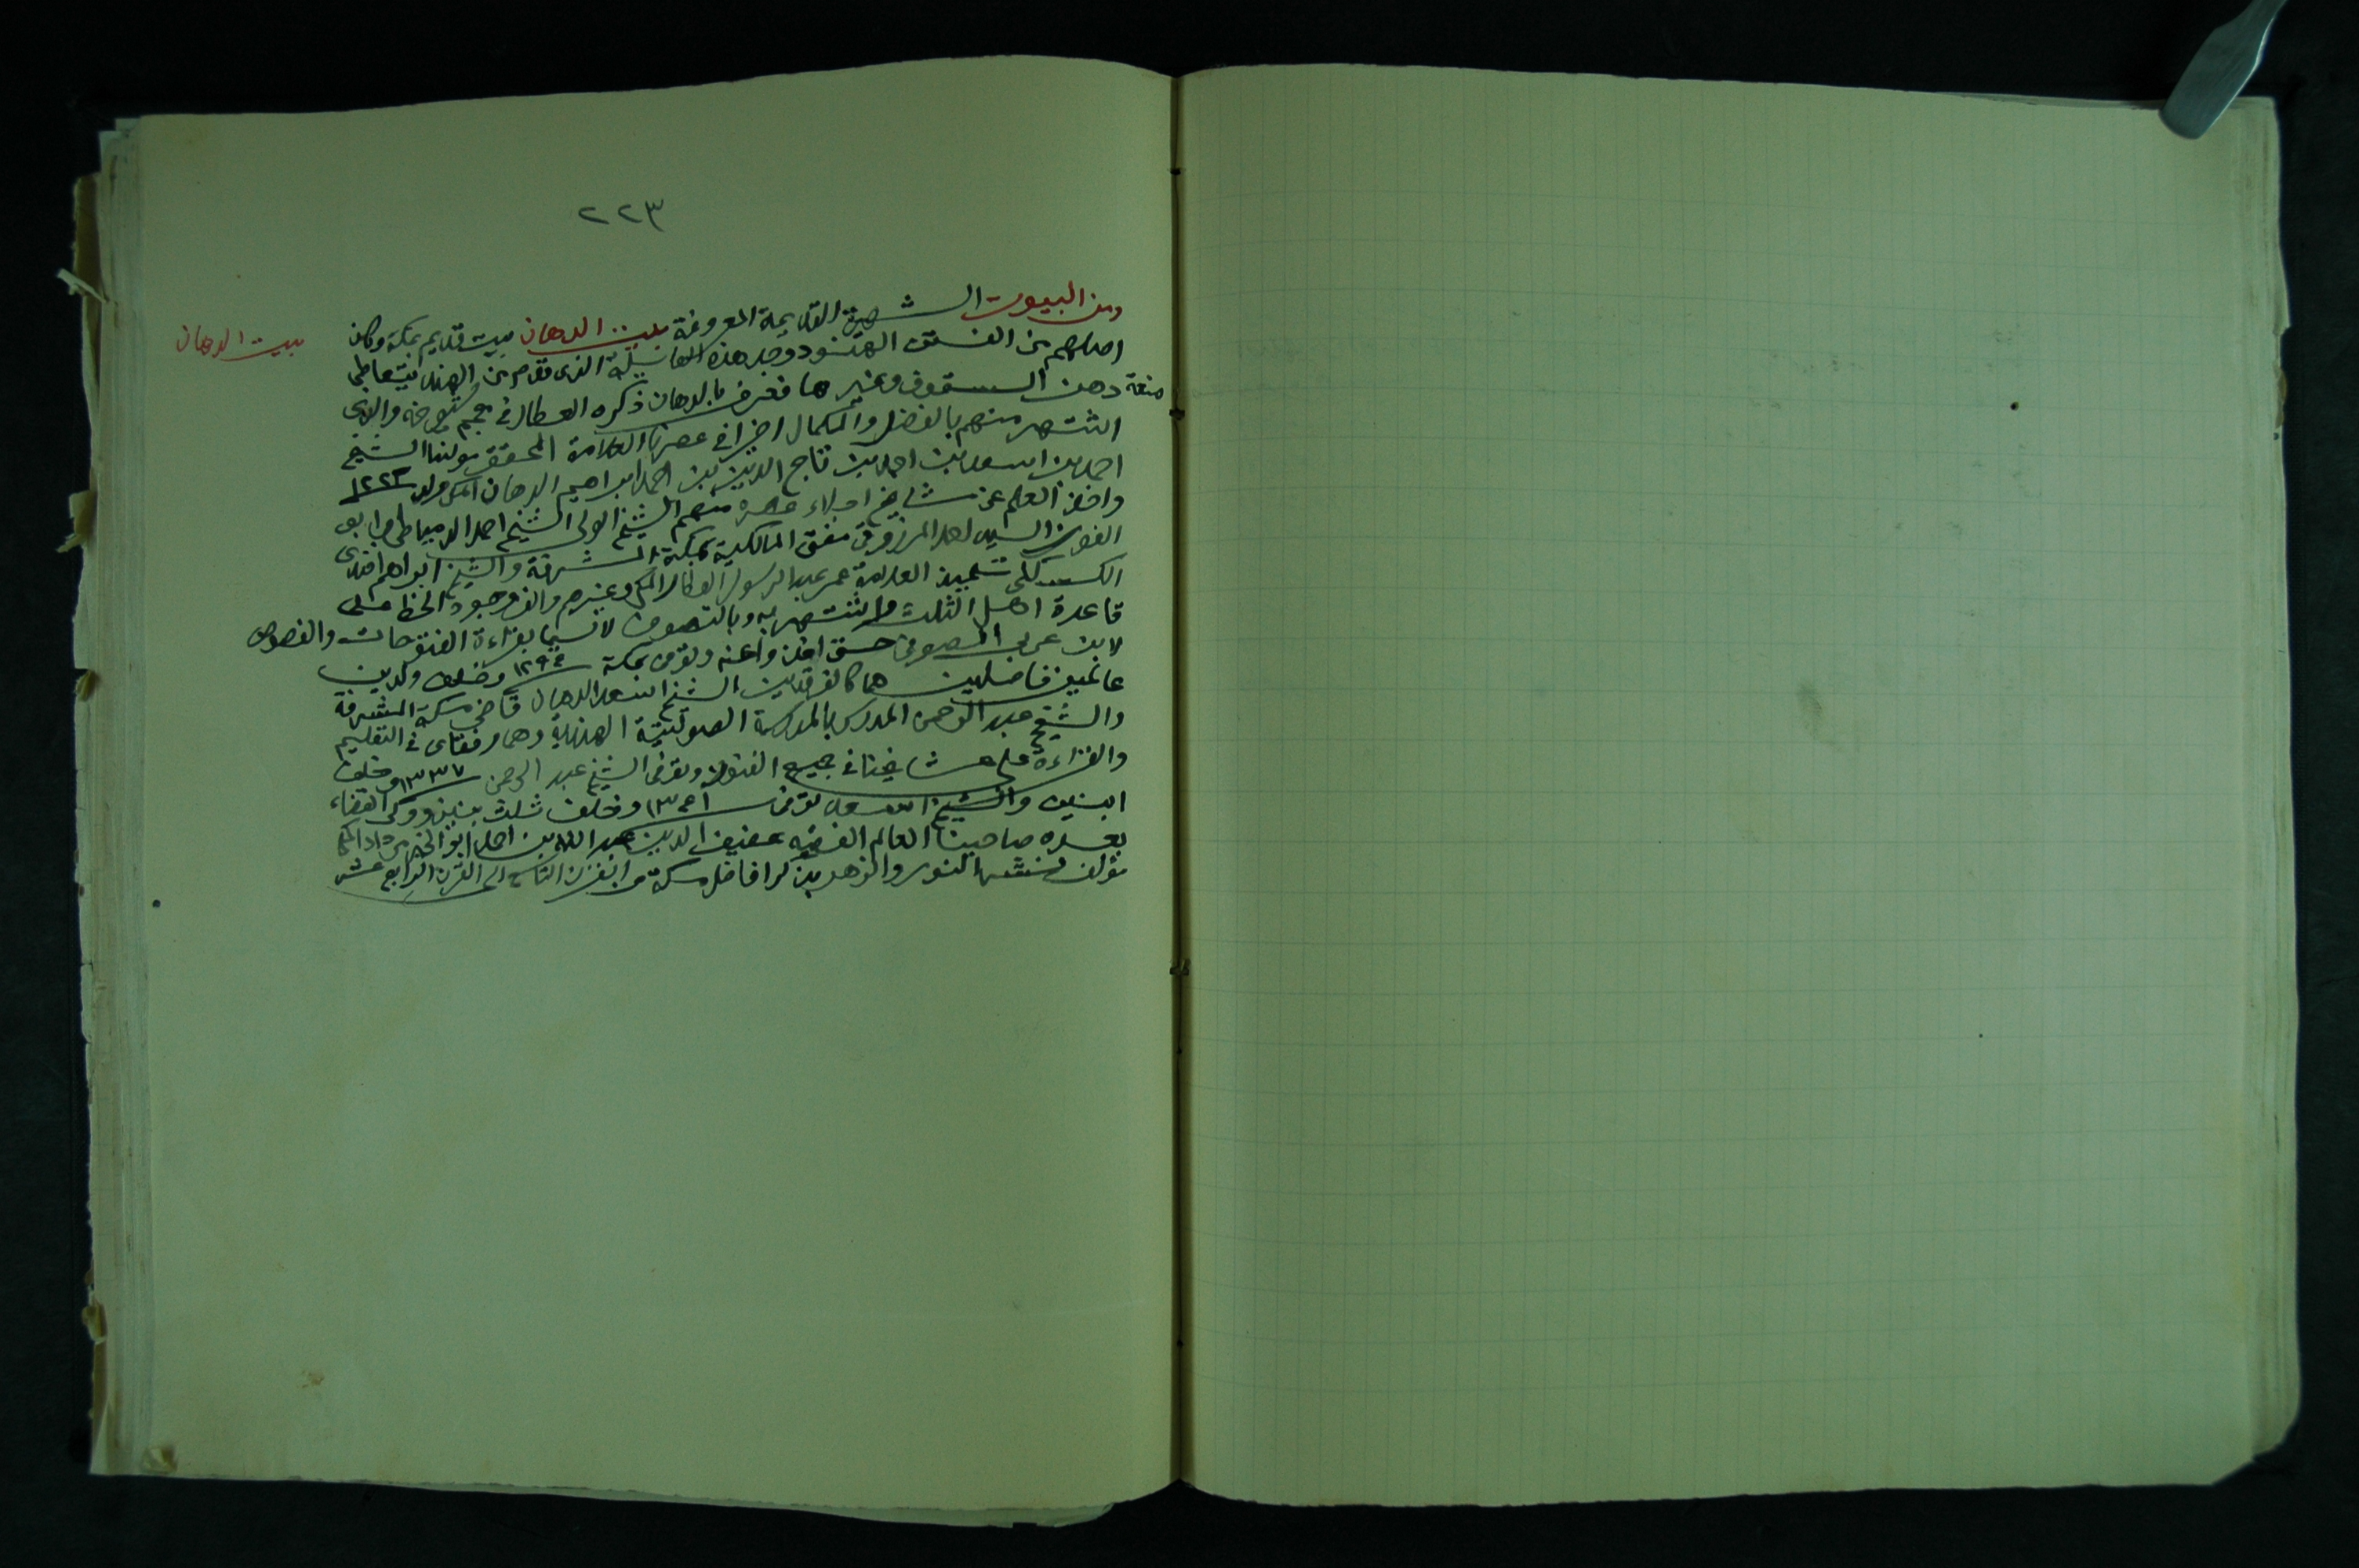 ٢٢٣
بيت الدهان
ومن البيوت الشهيرة القديمة المعروفة بيت الدهان بيت قديم بمكة وكان
اصلهم من الهنود وجد هذه العائلة الذى قدم من الهند يتعاطى
صنعة دهن السقوف وغيرها فعرف بالدهان ذكره العطار في معجم شيوخه والذى
اشتهر منهم بالفضل والكمال اخيرا في عصرنا العلامة المحقق مولنا الشيخ
احمد بن اسعد بن احمد بن تاج الدين بن احمد ابراهيم الدهان المكى ولد ١٢٢٣
واخذ العلم عن مشايخ اجلاء عصره منهم الشيخ الولى الشيخ احمد الدمياطى وابى
الفوز السيد احمد المرزوقى مفتى المالكية بمكة المشرفة والشيخ ابراهيم افندى
تلميذ العلامة عمر عبد الرسول العطار المكى وغيرهم وجود الخط على
قاعدة اهل الثلث واشتهر به وبالتصوف لا سيما بقراءة الفتوحات والفصوص
لابن عربى الصوفى حتى اخذوا عنه وتوفى بمكة ١٢٩٤ وخلف ولدين
عالمين فاضلين هما كالفرقدين الشيخ اسعد الدهان قاضى مكة المشرفة
والشيخ عبد الرحمن المدرس بالمدرسة الصولتية الهندية وهما رفقاى في التعليم
والقراءة على مشايخنا في جميع الفنون وتوفى الشيخ عبد الرحمن ١٣٣٧ وخلف
ابنين والشيخ اسعد توفى ١٣٤١ وخلف ثلث بنين وولى القضاء
بعده صاحبنا العالم الفقيه عفيف الدين عبد الله بن احمد ابو الخير مرداد المكى
مؤلف نشر النور والزهر بذكر افاضل مكة من القرن التاسع الى القرن الرابع عشر